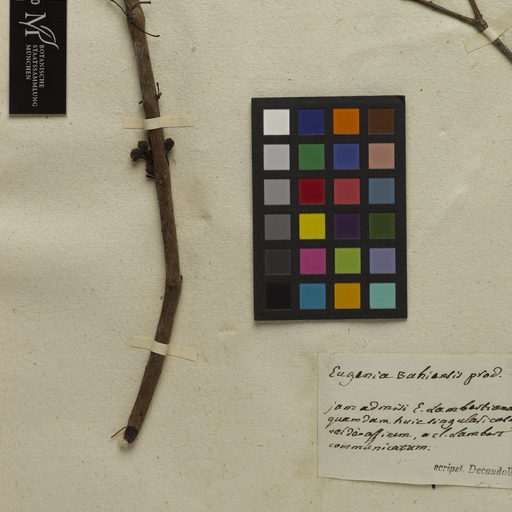 BOTANISCHE
STAATSSAMMLUNG
MÜNCHEN
Eugenia Bahiensis prod.
jam admisi E. Lambertiana
quamdam huic singulati
valde affinem, a cl. Lambert
communicatum.
script. Decandol